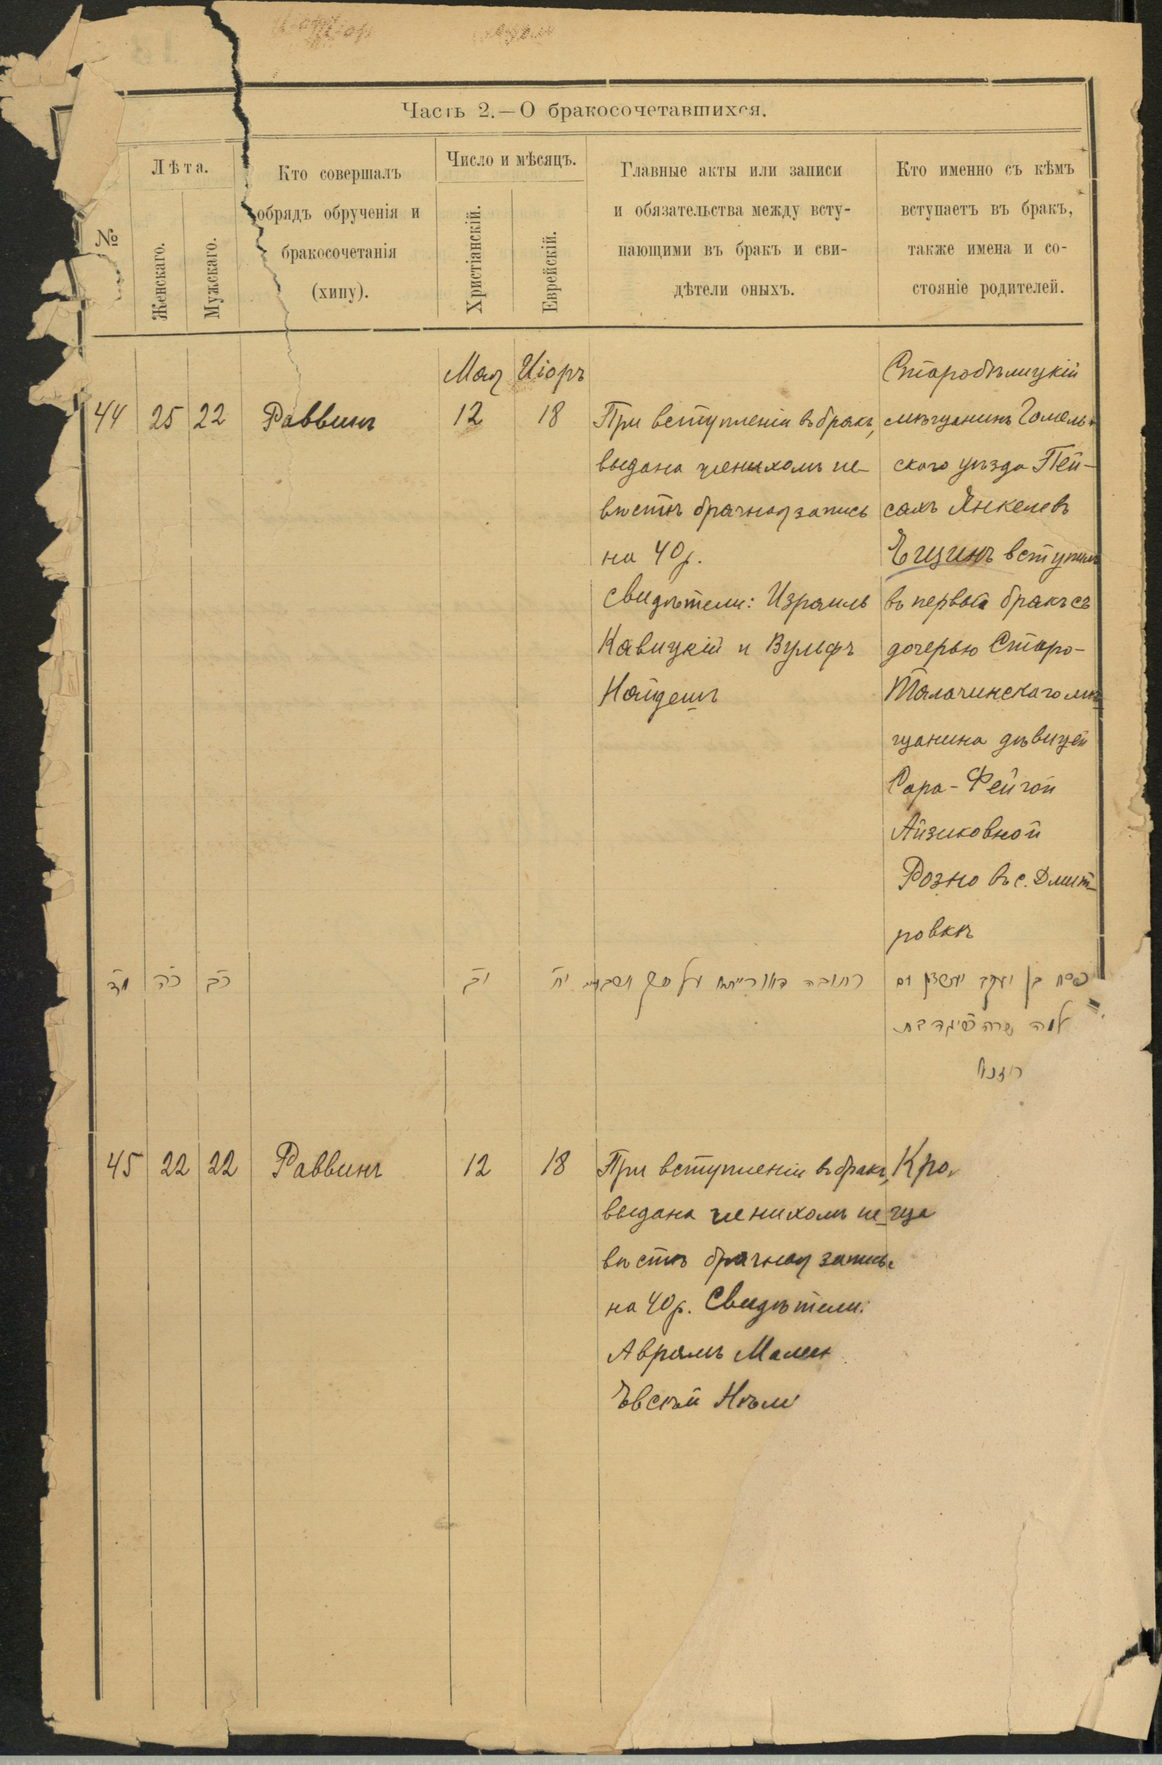 Часть 2.—О бракосочетавшихся.
№
Лѣта.
Женскаго.
Мужскаго.
Кто совершалъ
обрядъ обрученія и
бракосочетанія
(хипу).
Число и мѣсяцъ.
Христіанскій.
Еврейскій.
Главные акты или записи
и обязательства между всту-
пающими въ бракъ и сви-
дѣтели оныхъ.
Кто именно съ кѣмъ
вступаетъ въ бракъ,
также имена и со-
стояніе родителей.
44
25
22
Раввинъ
Мая
12
Иіоръ
18
При вступленіи въ бракъ,
выдана женихомъ не-
вѣстѣ брачная запись
на 40 р.
Свидѣтели: Израиль
Кавицкій и Вульфъ
Найдешъ
Старобѣлицкій
мѣщанинъ Гомель-
скаго уѣзда Пей-
сахъ Янкелевъ
Ещинъ вступилъ
въ первый бракъ съ
дочерью Старо-
Толочинскаго мѣ-
щанина дѣвицей
Сара-Фейгой
Айзиковной
Розно въ с. Дмит-
ровкѣ
מד
כה
כב
יב
יח
כתובה דאורייתא על סך
פסח בן יעקב
שרה פייגה בת
45
22
22
Раввинъ
12
18
При вступленіи въ бракъ,
выдана женихомъ не-
вѣстѣ брачная запись
на 40 р. Свидѣтели:
Аврамъ Мален
Ѣвсѣй Нѣм
Кро
ща